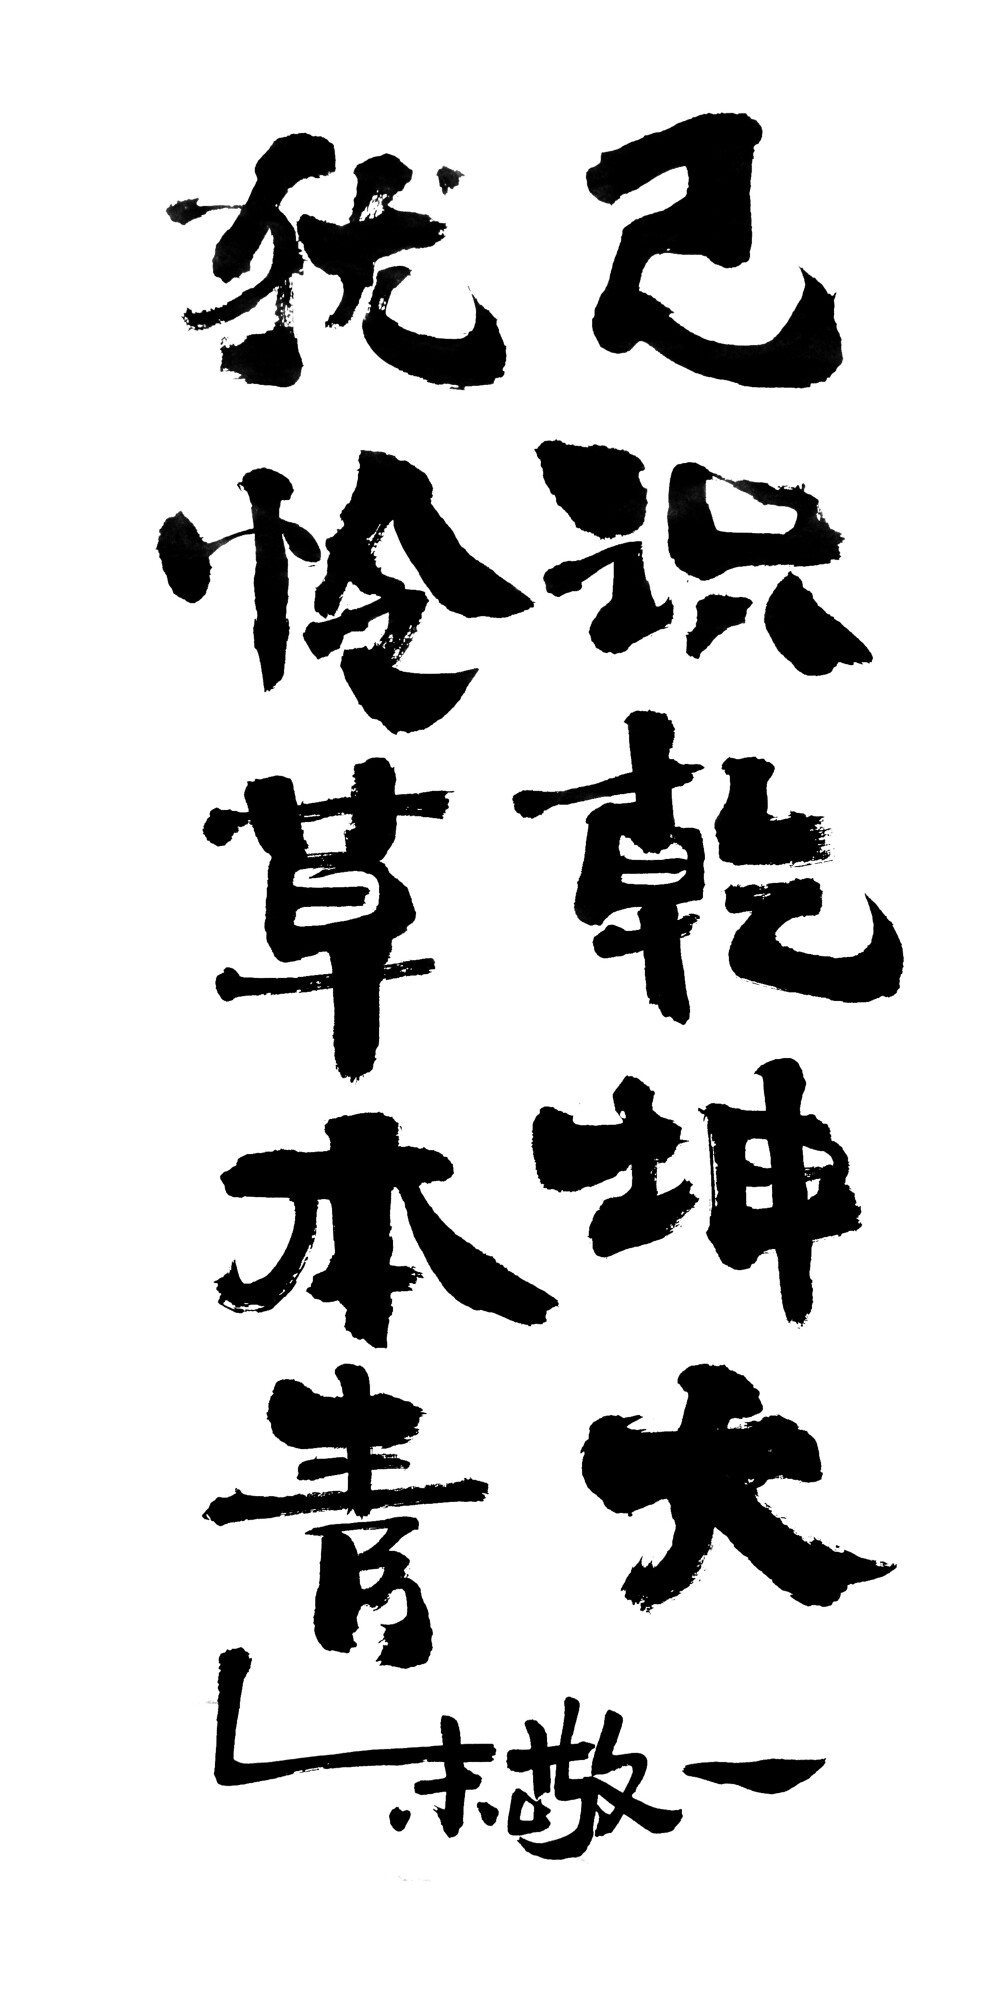 己识乾坤大
犹怜草本青
朱敬一